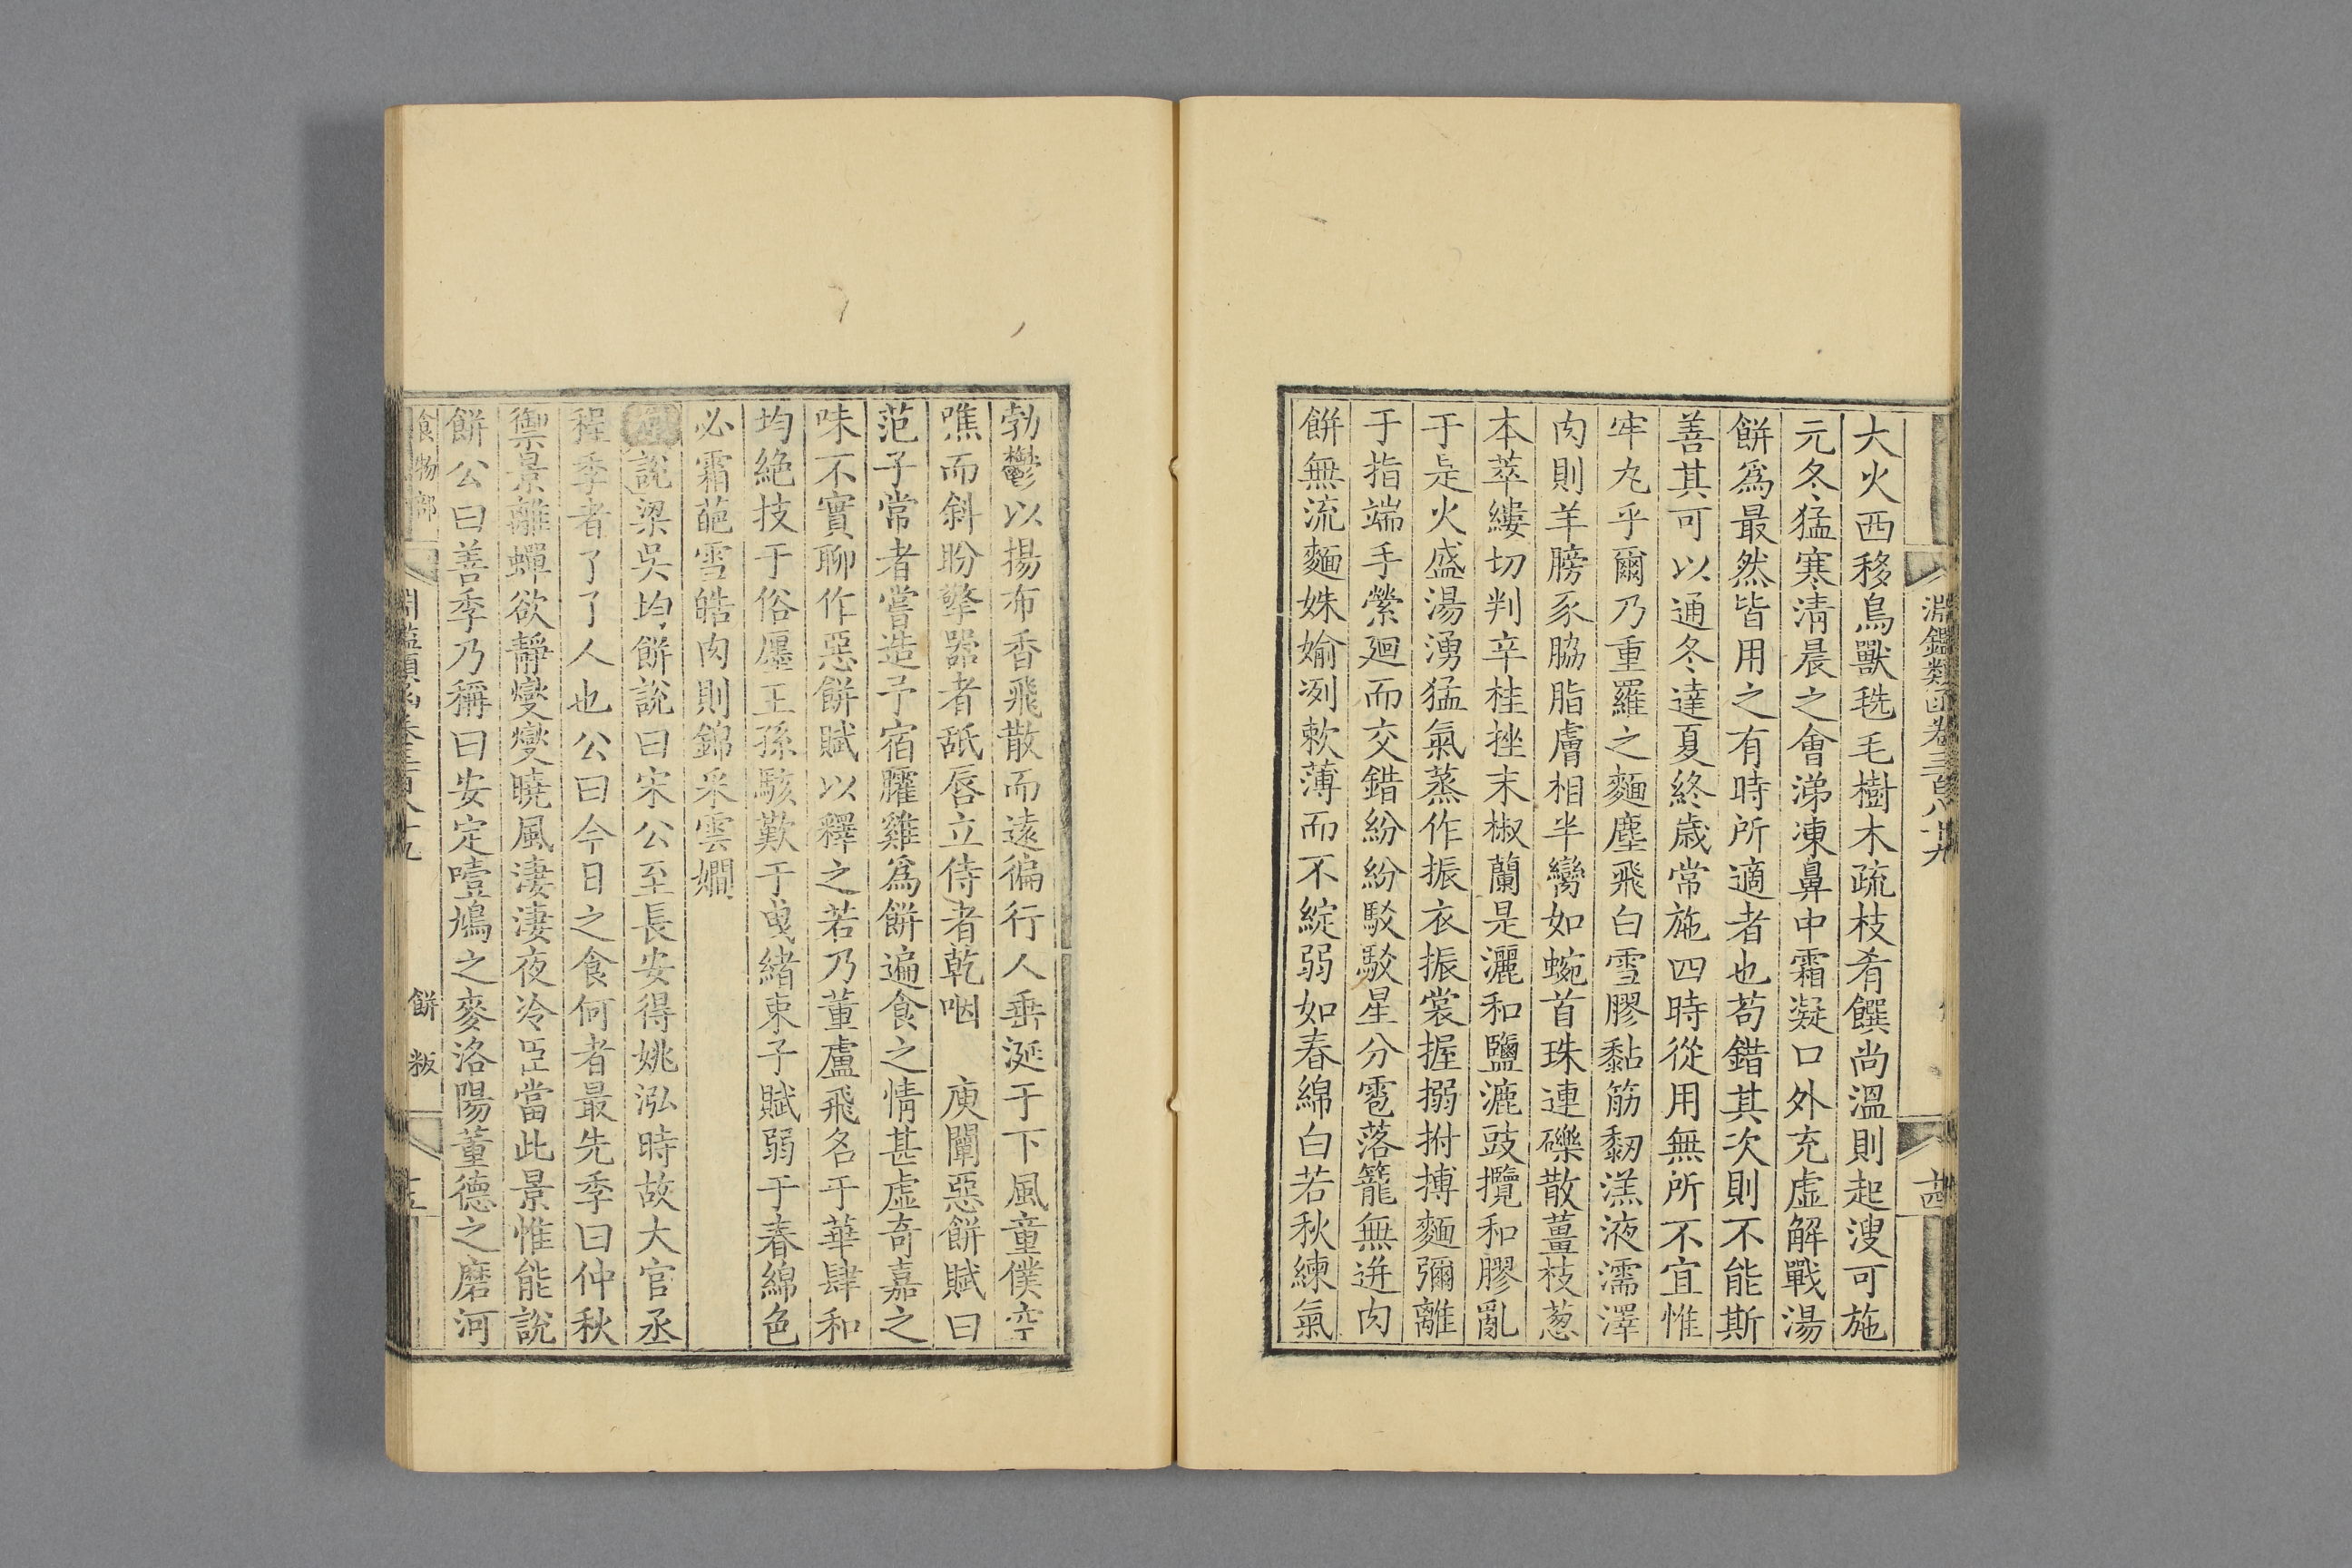 淵鑑類函卷三百八十九
十四
大火西移鳥獸毨毛樹木疏枝肴饌尚溫則起溲可施
元冬猛寒清晨之會涕凍鼻中霜凝口外充虛解戰湯
餅爲最然皆用之有時所適者也苟錯其次則不能斯
善其可以通冬達夏終歳常施四時從用無所不宜惟
牢丸乎爾乃重羅之麵塵飛白雪膠黏筋䵑溔液濡澤
肉則羊膀豕脇脂膚相半臠如蜿首珠連礫散薑枝葱
本萃縷切判辛桂挫末椒蘭是灑和鹽漉豉攬和膠亂
于是火盛湯湧猛氣蒸作振衣振裳握搦拊搏麵彌離
于指端手縈廻而交錯紛紛駁駁星分雹落籠無迸肉
餅無流麵姝媮冽敕薄而不綻弱如春綿白若秋練氣
勃鬱以揚布香飛散而遠徧行人垂涎于下風童僕空
噍而斜盼擎器者舐唇立侍者乾咽　庾闡惡餅賦曰
范子常者嘗造予宿臛雞爲餅遍食之情甚虛奇嘉之
味不實聊作惡餅賦以釋之若乃董盧飛名于華肆和
均絶技于俗廛王孫駭歎于曳緒束子賦弱于春綿色
必霜葩雪皓肉則錦采雲嫺
說梁吳均餅說曰宋公至長安得姚泓時故大官丞
程季者了了人也公曰今日之食何者最先季曰仲秋
禦景離蟬欲靜燮燮曉風淒淒夜冷臣當此景惟能說
餅公曰善季乃稱曰安定噎鳩之麥洛陽董德之磨河
食物部
淵鑑類函卷三百八十九
餅　粄
十五